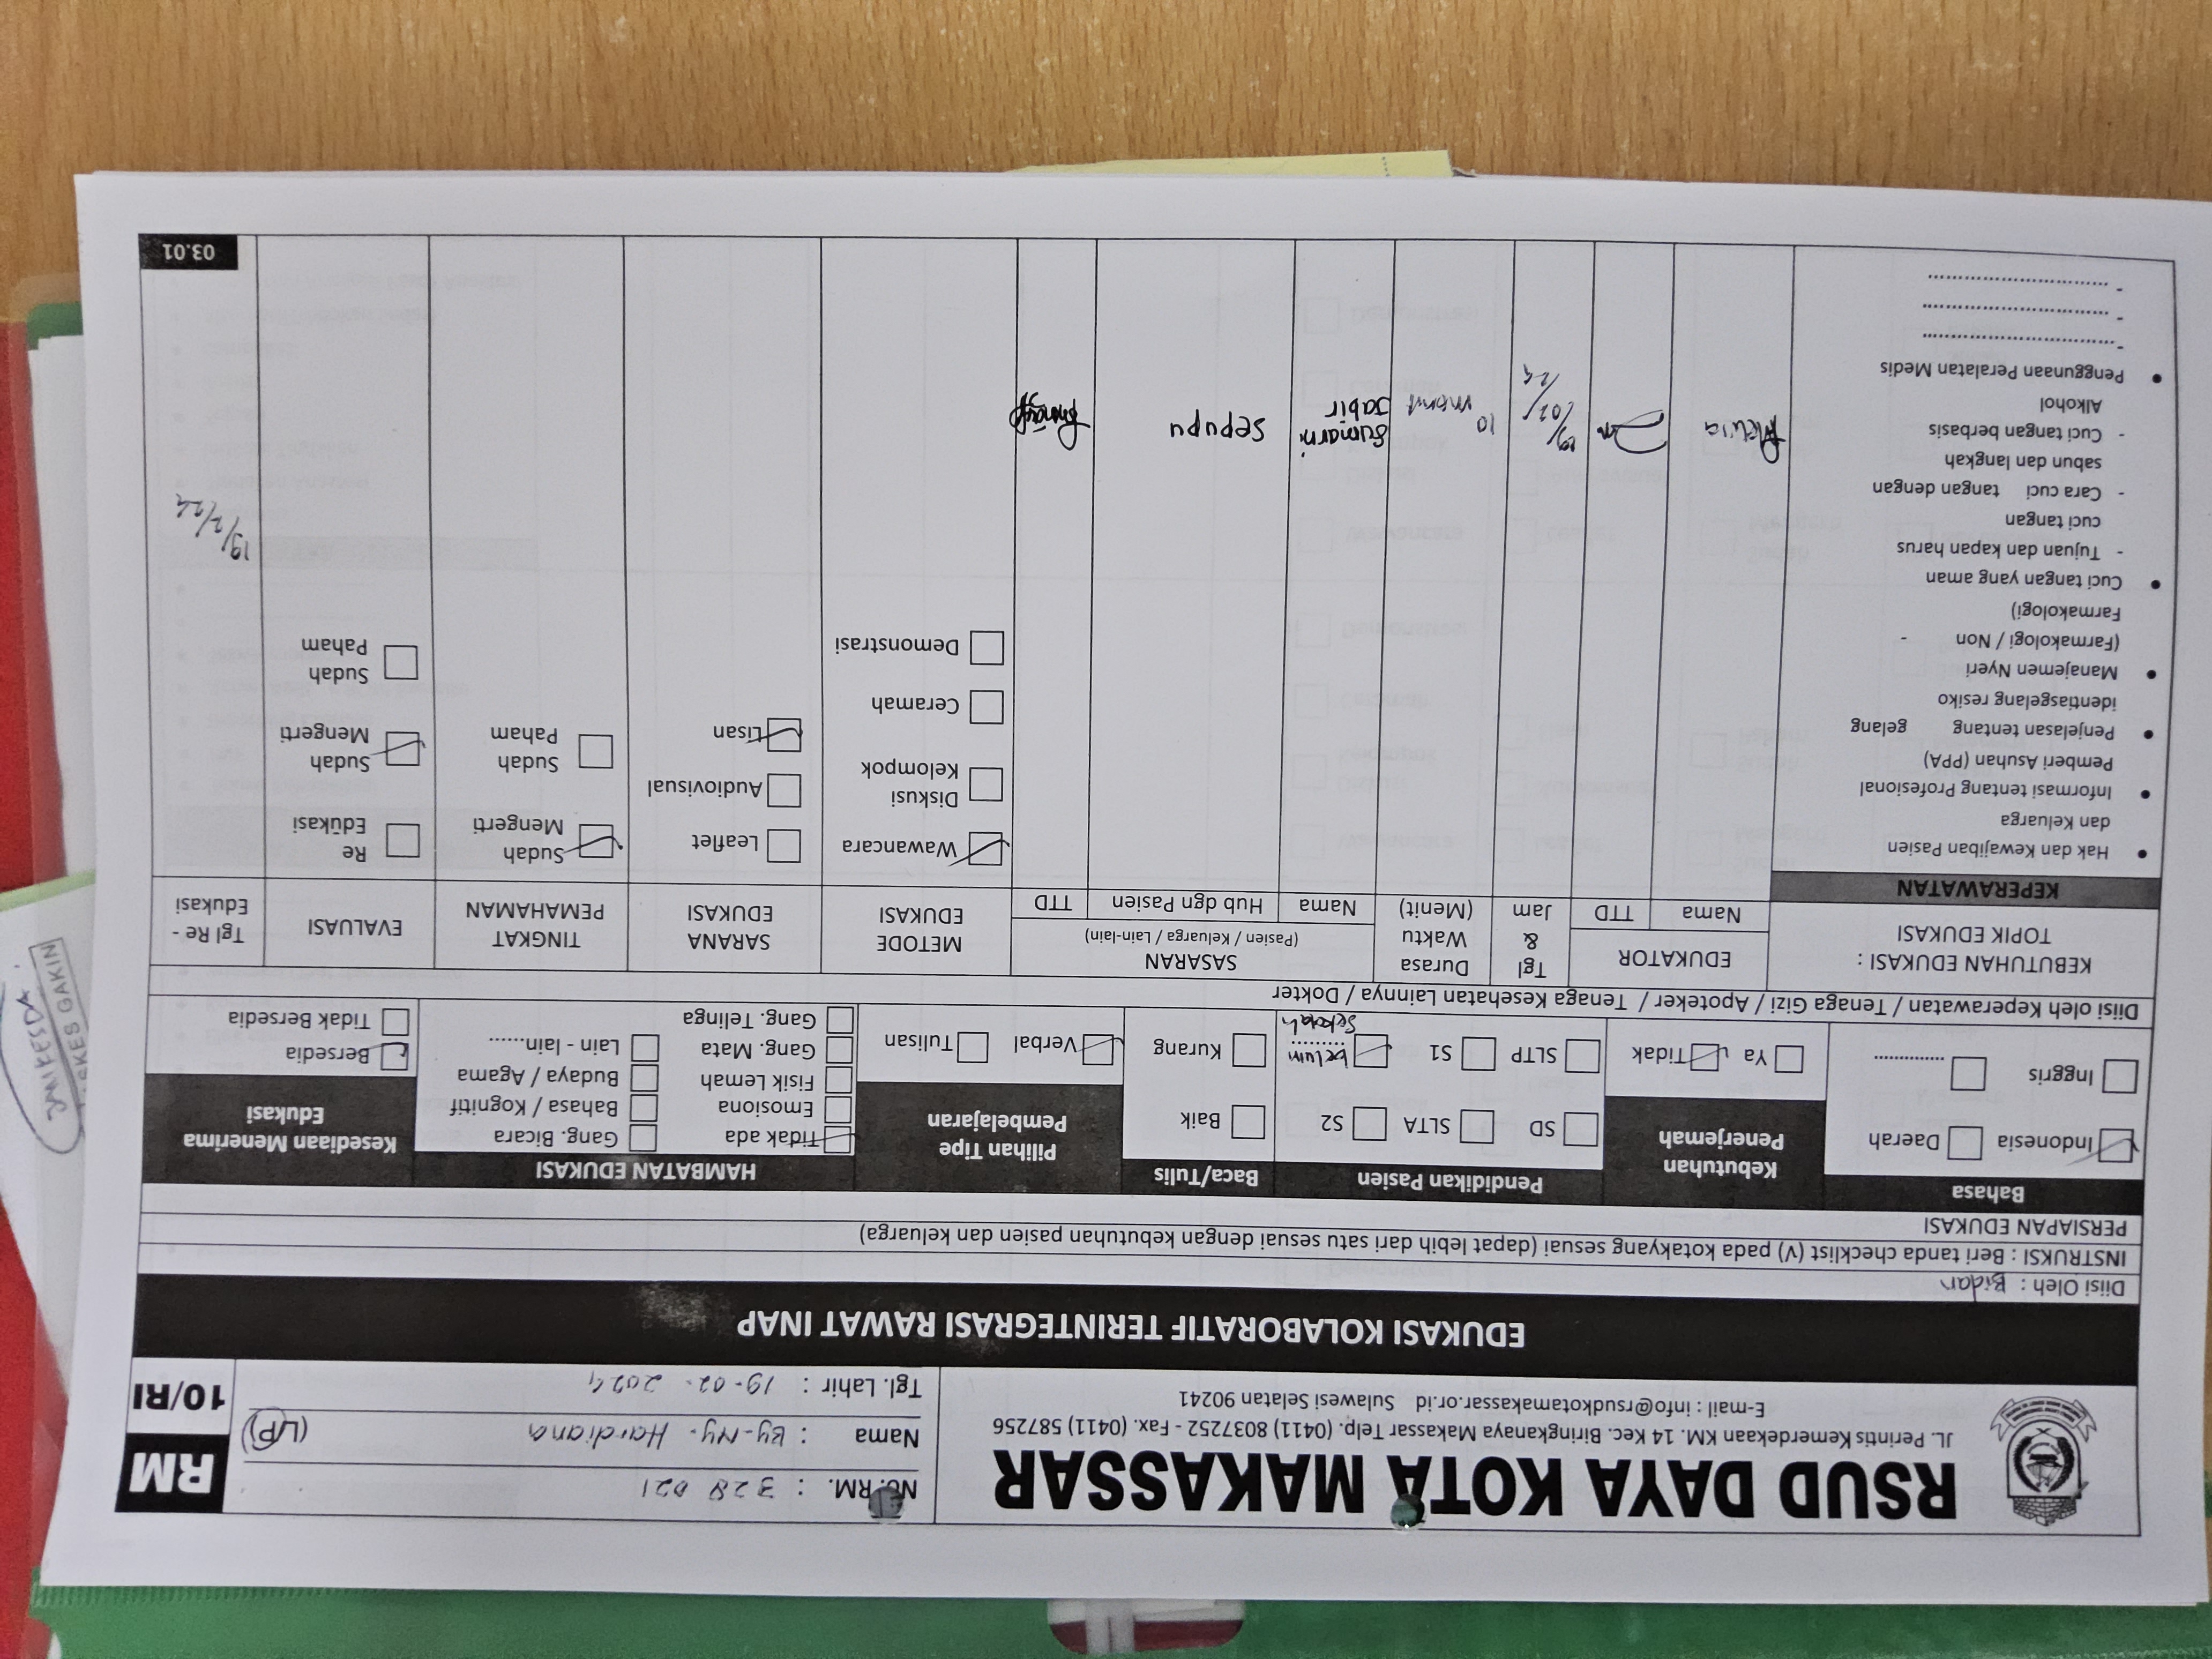 JAMKESDA
SKES GAKIN
RSUD DAYA KOTA MAKASSAR
JL. Perintis Kemerdekaan KM. 14 Kec. Biringkanaya Makassar Telp. (0411) 8037252 - Fax. (0411) 587256
E-mail : info@rsudkotamakassar.or.id Sulawesi Selatan 90241
No. RM. : 328 021
Nama : By-Ny- Hardiana (L/P)
Tgl. Lahir : 19-02-2024
RM
10/RI
EDUKASI KOLABORATIF TERINTEGRASI RAWAT INAP
Diisi Oleh : Bidan
INSTRUKSI : Beri tanda checklist (V) pada kotakyang sesuai (dapat lebih dari satu sesuai dengan kebutuhan pasien dan keluarga)
PERSIAPAN EDUKASI
Bahasa
Indonesia Daerah
Inggris ............
Kebutuhan
Penerjemah
Ya Tidak
Pendidikan Pasien
SD SLTA S2
SLTP S1 belum
Sekolah
Baca/Tulis
Baik
Kurang
Pilihan Tipe
Pembelajaran
Verbal Tulisan
HAMBATAN EDUKASI
Tidak ada Gang. Bicara
Emosiona Bahasa / Kognitif
Fisik Lemah Budaya / Agama
Gang. Mata Lain - lain.....
Gang. Telinga
Kesediaan Menerima
Edukasi
Bersedia
Tidak Bersedia
Diisi oleh Keperawatan / Tenaga Gizi / Apoteker / Tenaga Kesehatan Lainnya / Dokter
KEBUTUHAN EDUKASI :
TOPIK EDUKASI
EDUKATOR
Nama TTD
Tgl
&
Jam
Durasa
Waktu
(Menit)
SASARAN
(Pasien / Keluarga / Lain-lain)
Nama Hub dgn Pasien TTD
METODE
EDUKASI
SARANA
EDUKASI
TINGKAT
PEMAHAMAN
EVALUASI
Tgl Re -
Edukasi
KEPERAWATAN
• Hak dan Kewajiban Pasien
dan Keluarga
• Informasi tentang Profesional
Pemberi Asuhan (PPA)
• Penjelasan tentang gelang
identiasgelang resiko
• Manajemen Nyeri
(Farmakologi / Non -
Farmakologi)
• Cuci tangan yang aman
- Tujuan dan kapan harus
cuci tangan
- Cara cuci tangan dengan
sabun dan langkah
- Cuci tangan berbasis
Alkohol
• Penggunaan Peralatan Medis
-..............................
- ............................
- ............................
19/02/24
10
menit
Sumarni
Jabir
Sepupu
Wawancara
Diskusi
Kelompok
Ceramah
Demonstrasi
Leaflet
Audiovisual
Lisan
Sudah
Mengerti
Sudah
Paham
Re
Edukasi
Sudah
Mengerti
Sudah
Paham
19/2/24
03.01